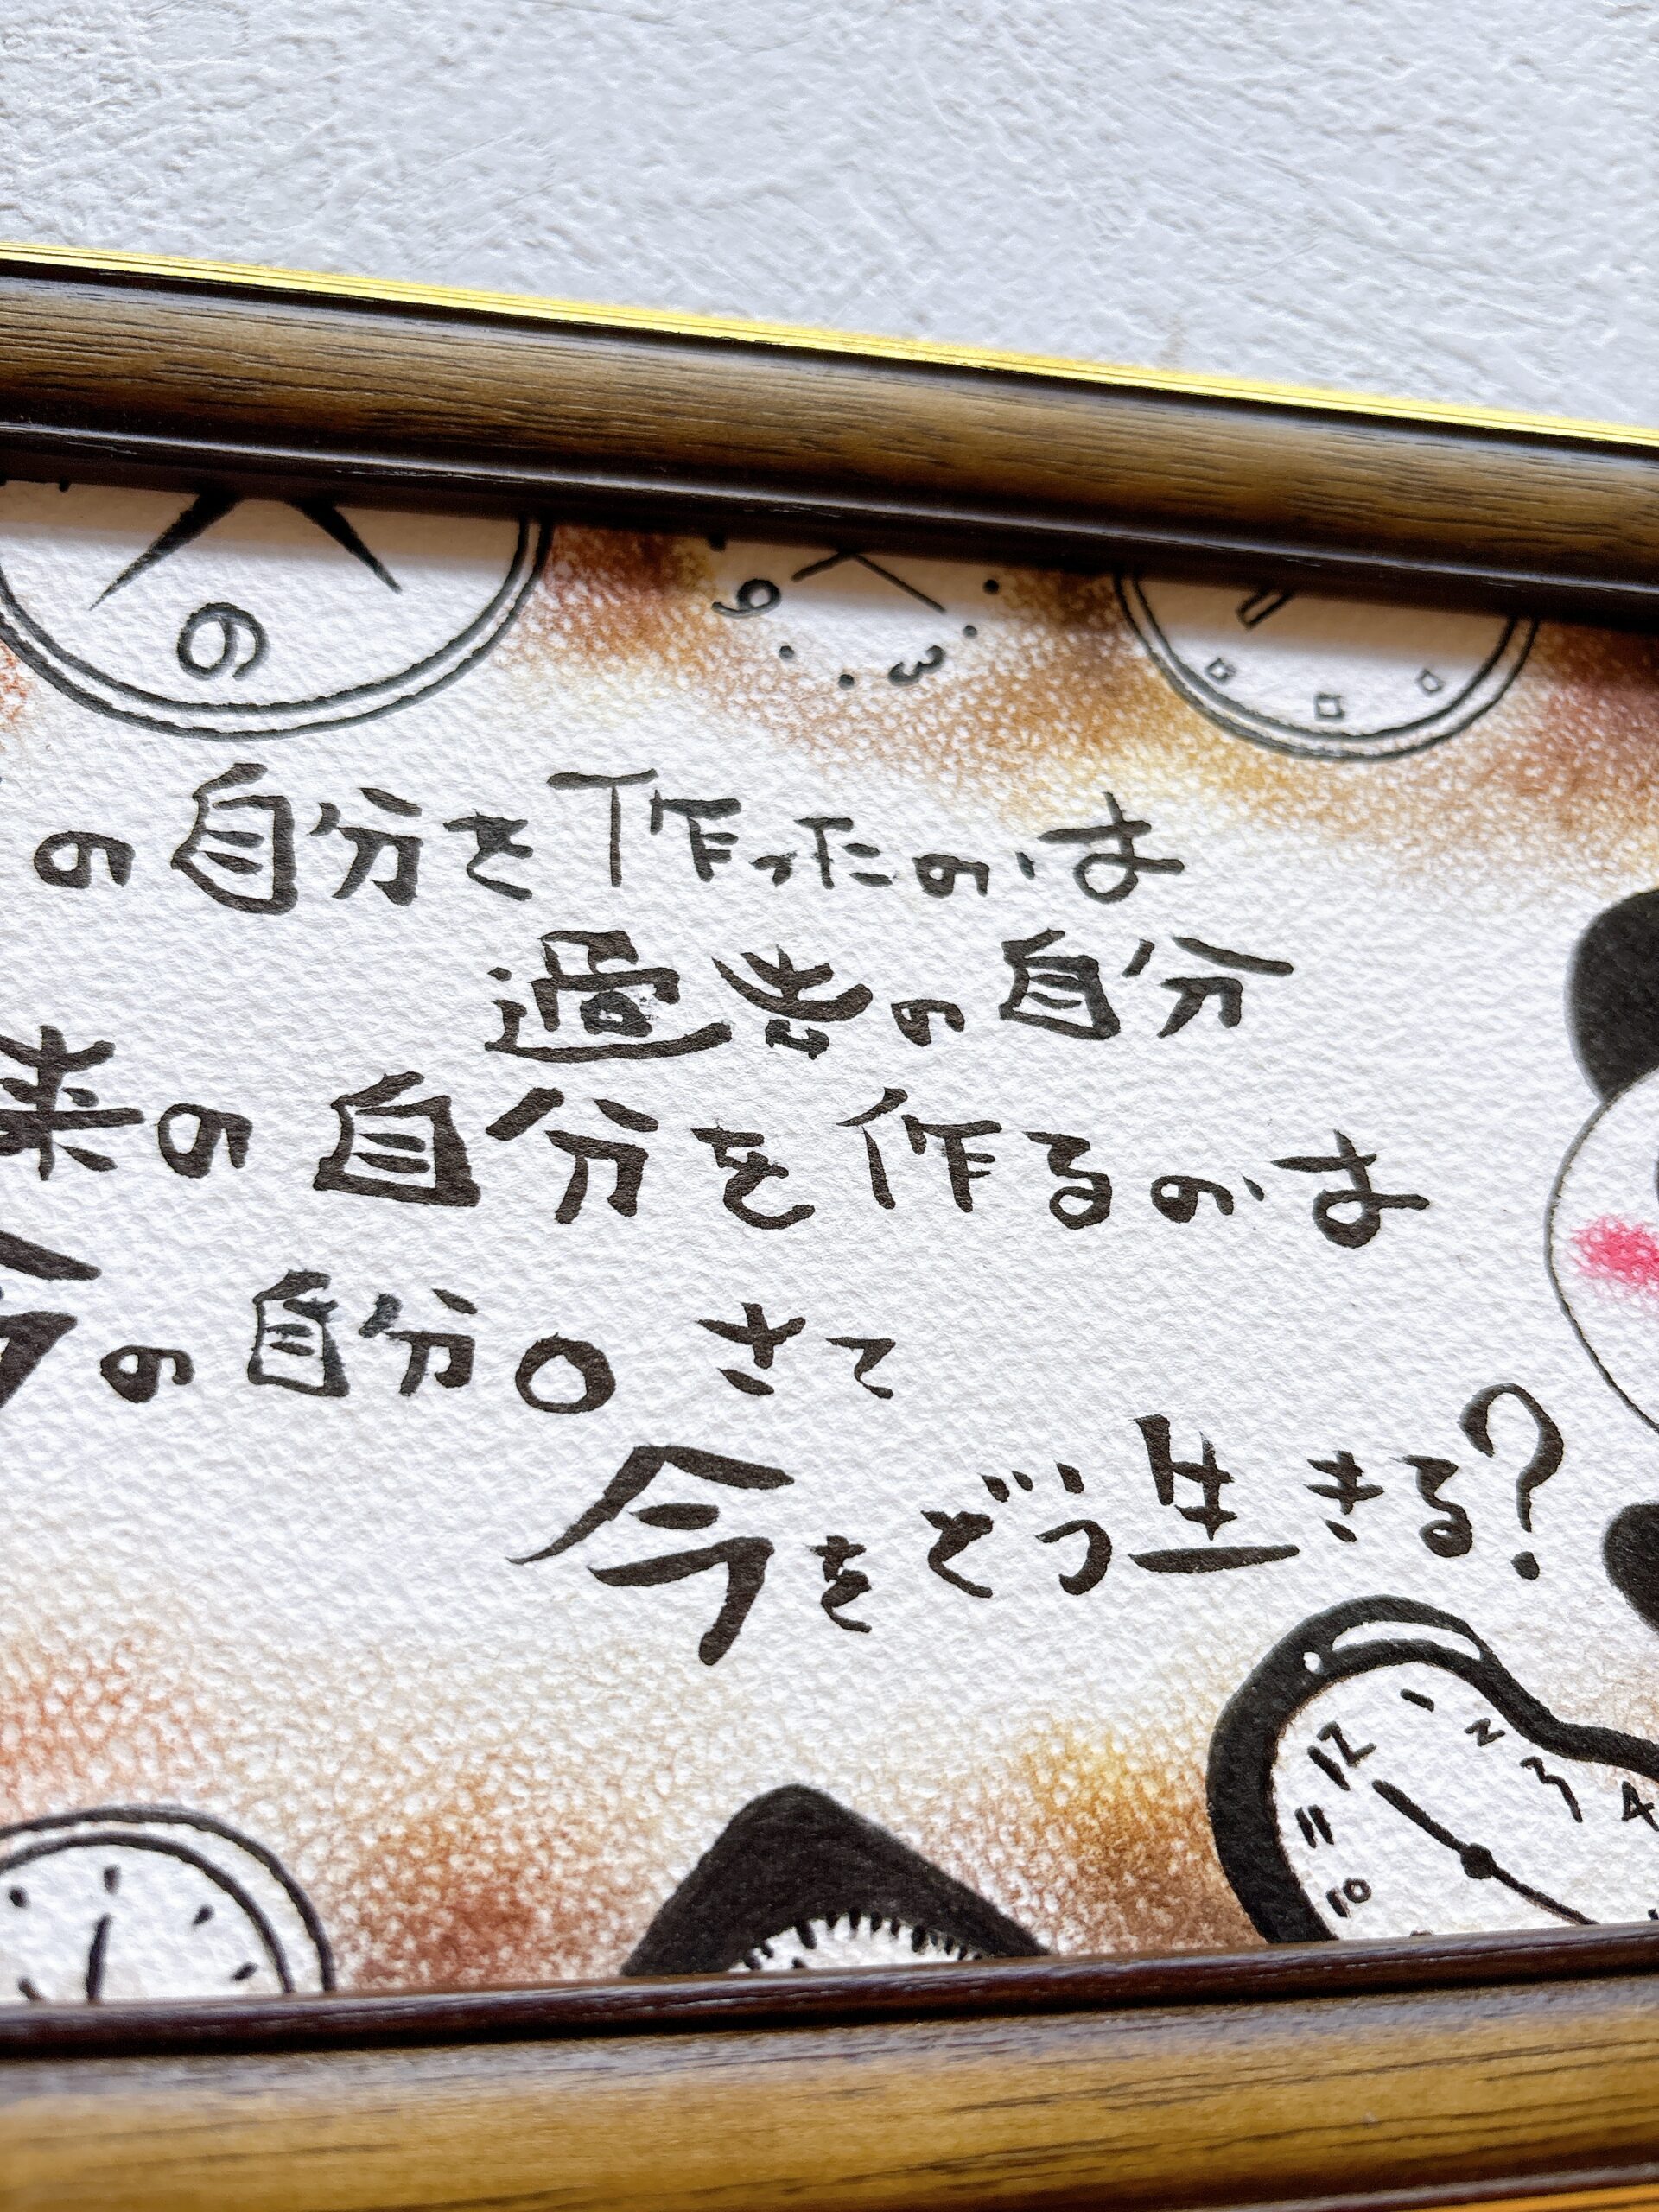 6
9
3
の自分を作ったのは
過去の自分
来の自分を作るのは
今の自分。さて
今をどう生きる?
12
2
3
4
11
10